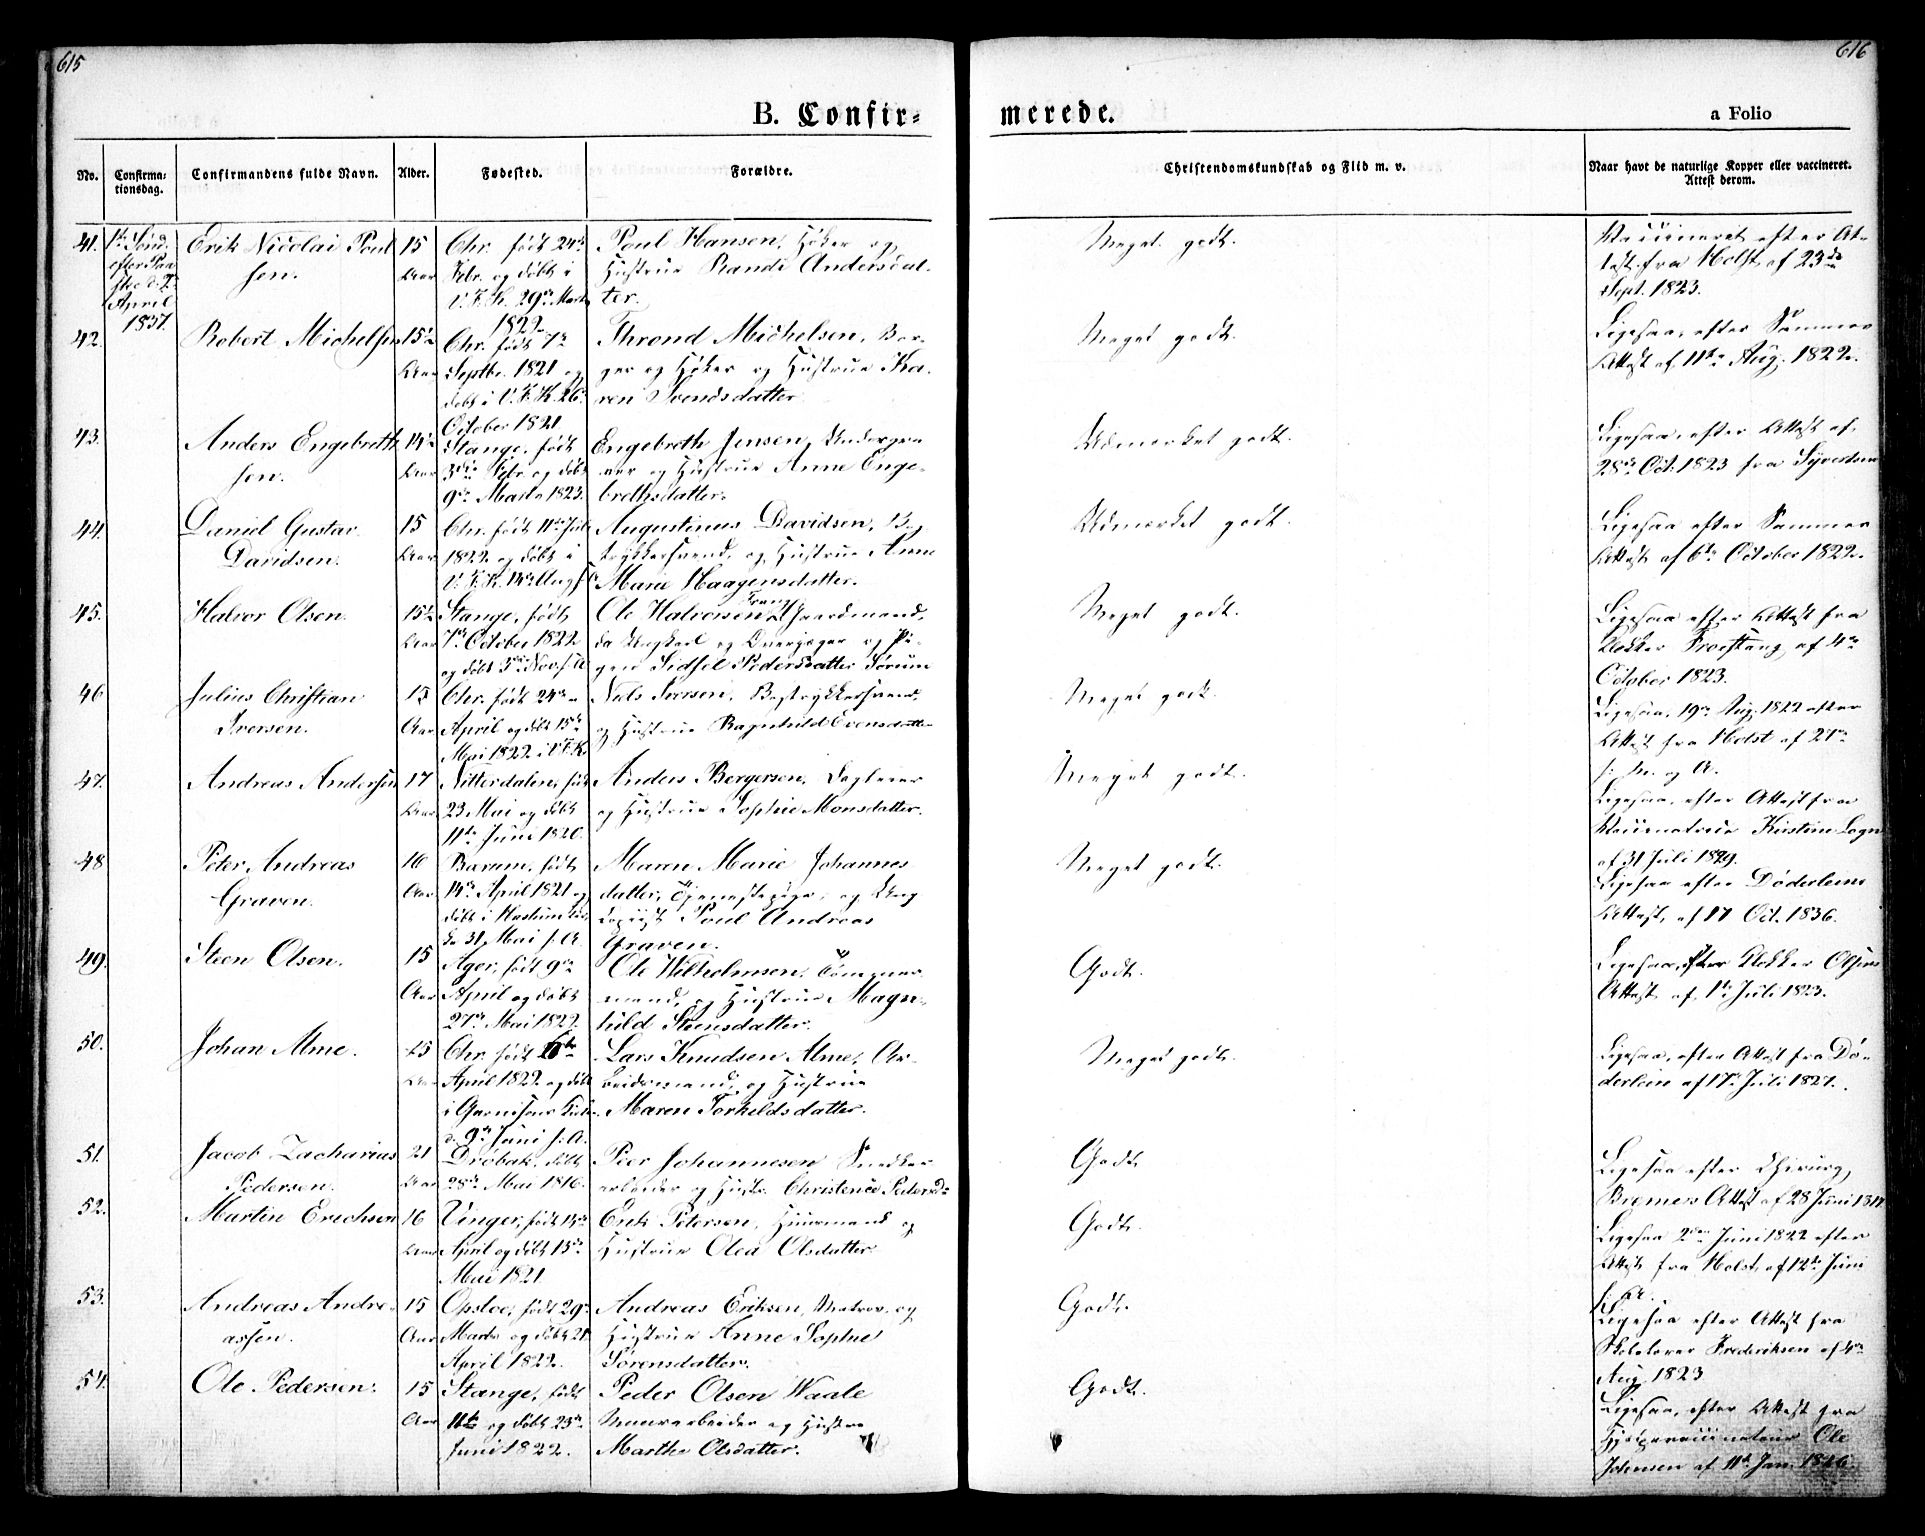 615
616
B. Confir-
merede.
a Folio
No.
Confirma-
tionsdag.
Confirmandens fulde Navn.
Alder.
Fødested.
Forældre.
Christendomskundskab og Flid m. v.
Naar havt de naturlige Kopper eller vaccineret.
Attest derom.
41.
1ste Sønd.
efter Paa-
April
1837.
Erik Nicolai Poul
sen.
15
Aar
Chr. født 24de
Febr. og døbt i
V. F. K. 29de Marts
1822
Poul Hansen, Høker og
Hustrue Randi Andersdat-
ter.
Meget godt.
Vaccineret efter At-
test fra Holst af 23de
Sept. 1823.
42.
Robert Michelsen
15½
Aar
Chr. født 7de
Septbr. 1821 og
døbt i V. F. K. 26de
October 1821.
Thrond Michelsen, Bor-
ger og Høker og Hustrue Ka-
ren Svendsdatter
Meget godt.
Ligesaa, efter Samme
Attest af 11te Aug. 1822.
43.
Anders Engebreth
sen.
14½
Aar
Stange, født
3die Febr. og døbt
9de Marts 1823.
Engebreth Jensen,
og Hustrue Anne Enge-
brethsdatter.
Udmærket godt.
Ligesaa, efter Attest af
28de Oct. 1823 fra Syvertsen
44.
Daniel Gustav
Davidsen.
15
Aar
Chr. født 11te Juli
1822 og døbt i
V. F. K. 14de Aug.
Augustinus Davidsen, Bog
trykkersvend, og Hustrue Anne
Marie Haagensdatter.
Udmærket godt.
Ligesaa efter Samme
Attest af 6te October 1822.
45.
Halvor Olsen.
15½
Aar
Stange, født
7de October 1822
og døbt 3die Nov. s. A.
Ole Halvorsen Frang Gaardmand,
da Ungkarl og Overjæger og Pi-
gen Sidsel Pedersdatter Sørum
Meget godt.
Ligesaa efter Attest fra
Klokker Frostang af 4de
October 1823.
46
Julius Christian
Iversen.
15
Aar
Chr. født 24de
April og døbt 15de
Mai 1822 i V. F. K.
Niels Iversen, Bogtrykkersvend,
og Hustrue Ragnhild Evensdatter
Meget godt.
Ligesaa, 19de Aug. 1822 efter
Attest fra Holst af 27de
s. M. og A.
47.
Andreas Andersen
17
Aar
Nitterdalen, født
23 Mai og døbt
11te Juni 1820.
Anders Bergersen, Dagleier
og Hustrue Sophie Monsdatter.
Meget godt.
Ligesaa, efter Attest fra
Vaccinatrice Kirstine Logn
af 31 Juli 1829.
48
Peter Andreas
Graven.
16
Aar
Bærum, født
14de April 1821 og
døbt i Haslum
31 Mai s. A.
Maren Marie Johannes
datter, Tjenestepige, og Ung
Copiist Poul Andreas
Graven.
Meget godt.
Ligesaa efter Døderleins
Attest, af 17 Oct. 1836.
49.
Steen Olsen.
15
Aar
Ager, født 9de
April og døbt
27de Mai 1822.
Ole Wilhelmsen, Tømmer
mand, og Hustrue Magn-
hild Steensdatter.
Godt.
Ligesaa, efter Klokker Olsens
Attest af 1ste Juli 1823.
50.
Johan Alme.
15
Aar
Chr. født 6te
April 1822 og døbt
i Garnisons Kirken
d. 9de Juni s. A.
Lars Knudsen Alme, Ar-
beidsmand, og Hustrue
Maren Torkeldsdatter.
Meget godt.
Ligesaa, efter Attest fra Dø-
derlein af 17de Juli 1827.
51.
Jacob Zacharius
Pedersen.
21
Aar
Drøbak, døbt
28de Mai 1816.
Peer Johannesen Snedker
arbeider og Hustr. Christence Pedersd.
Godt
Ligesaa efter Chirurg
Attest af 28 Juni 1817
52.
Martin Erichsen
16
Aar
Vinger, født 13de
April og døbt 13de
Mai 1821
Erik Petersen, Huusmand og
Hustrue Olea Olsdatter
Godt.
Ligesaa 2den Juni 1822 efter
Attest fra Holst, af 12te Juni
s. A.
53.
Andreas Andre-
assen.
15
Aar
Opsloe, født 29de
Marts og døbt 21
April 1822.
Andreas Eriksen, Matros, og
Hustrue Anne Sophie
Sørensdatter.
Godt.
Ligesaa efter Attest fra
Skolelærer Frederiksen af 4de
Aug. 1823
54.
Ole Pedersen.
15
Aar
Stange, født
11te og døbt 23de
Juni 1822.
Peder Olsen Waale
Muurarbeider og Hustrue
Marthe Olsdatter.
Godt.
Ligesaa, efter Attest fra
Hjelpevaccinateur Ole
Johnsen af 11te Jan. 1826.